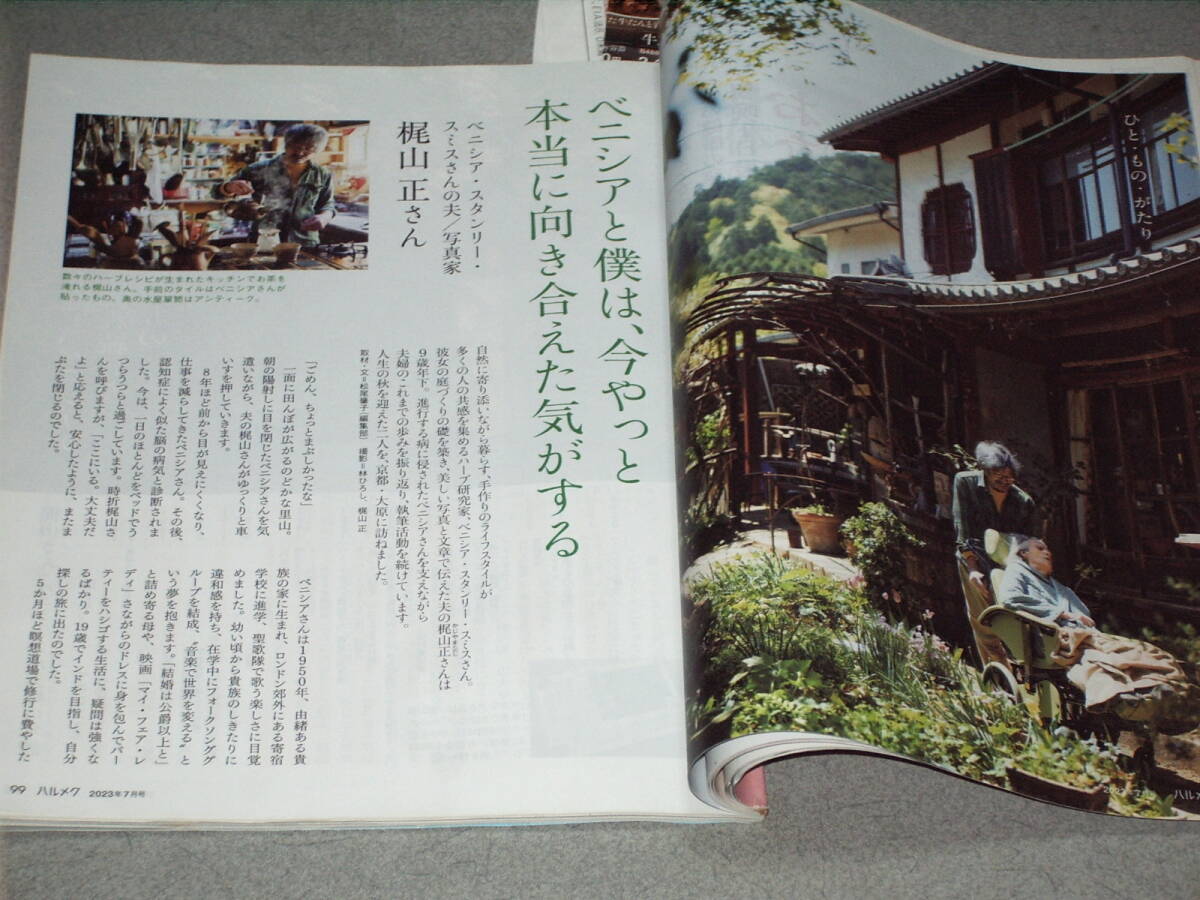 ひと・もの・がたり
ベニシアと僕は、今やっと
本当に向き合えた気がする
ベニシア・スタンリー・
スミスさんの夫／写真家
梶山 正さん
数々のハーブレシピが生まれたキッチンでお茶を
淹れる梶山さん。手前のタイルはベニシアさんが
貼ったもの。奥の水屋箪笥はアンティーク。
自然に寄り添いながら暮らす、手作りのライフスタイルが
多くの人の共感を集めるハーブ研究家、ベニシア・スタンリー・スミスさん。
彼女の庭づくりの礎を築き、美しい写真と文章で伝えた夫の梶山正さんは
9歳年下。進行する病に侵されたベニシアさんを支えながら
夫婦のこれまでの歩みを振り返り、執筆活動を続けています。
人生の秋を迎えた二人を、京都・大原に訪ねました。
撮影=林ひろし、梶山 正
「ごめん、ちょっとまぶしかったな」
一面に田んぼが広がるのどかな里山。
朝の陽射しに目を閉じたベニシアさんを気
遣いながら、夫の梶山さんがゆっくりと車
いすを押していきます。
8年ほど前から目が見えにくくなり、
仕事を減らしてきたベニシアさん。その後、
認知症によく似た脳の病気と診断されま
した。今は、一日のほとんどをベッドでう
つらうつらと過ごしています。時折梶山さ
んを呼びますが、「ここにいる。大丈夫だ
よ」と応えると、安心したように、またま
ぶたを閉じるのでした。
ベニシアさんは1950年、由緒ある貴
族の家に生まれ、ロンドン郊外にある寄宿
学校に進学、聖歌隊で歌う楽しさに目覚
めました。幼い頃から貴族のしきたりに
違和感を持ち、在学中にフォークソンググ
ループを結成、“音楽で世界を変える”と
いう夢を抱きます。「結婚は公爵以上と」
と詰め寄る母や、映画「マイ・フェア・レ
ディ」さながらのドレスに身を包んでパー
ティーをハシゴする生活に、疑問は強くな
るばかり。19歳でインドを目指し、自分
探しの旅に出たのでした。
5か月ほど瞑想道場で修行に費やした
99 ハルメク 2023年7月号